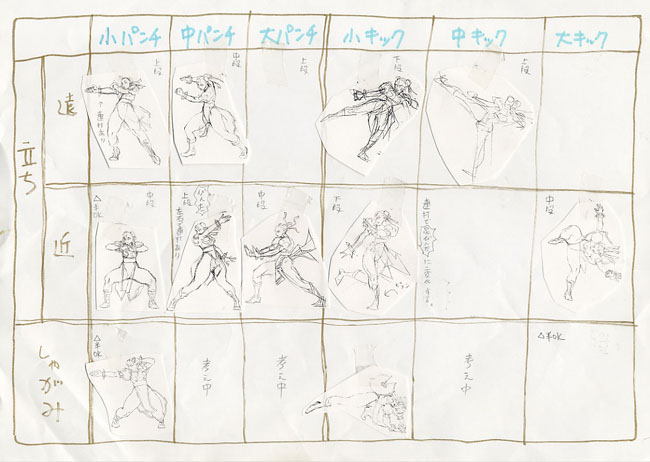 小パンチ 中パンチ 大パンチ 小キック 中キック 大キック
立ち
遠
上段
連打あり
中段
上段
下段
上段
近
△手OK
中段
上段
左右で連打あり
中段
下段
中段
しゃがみ
△手OK
考え中
考え中
考え中
△手OK